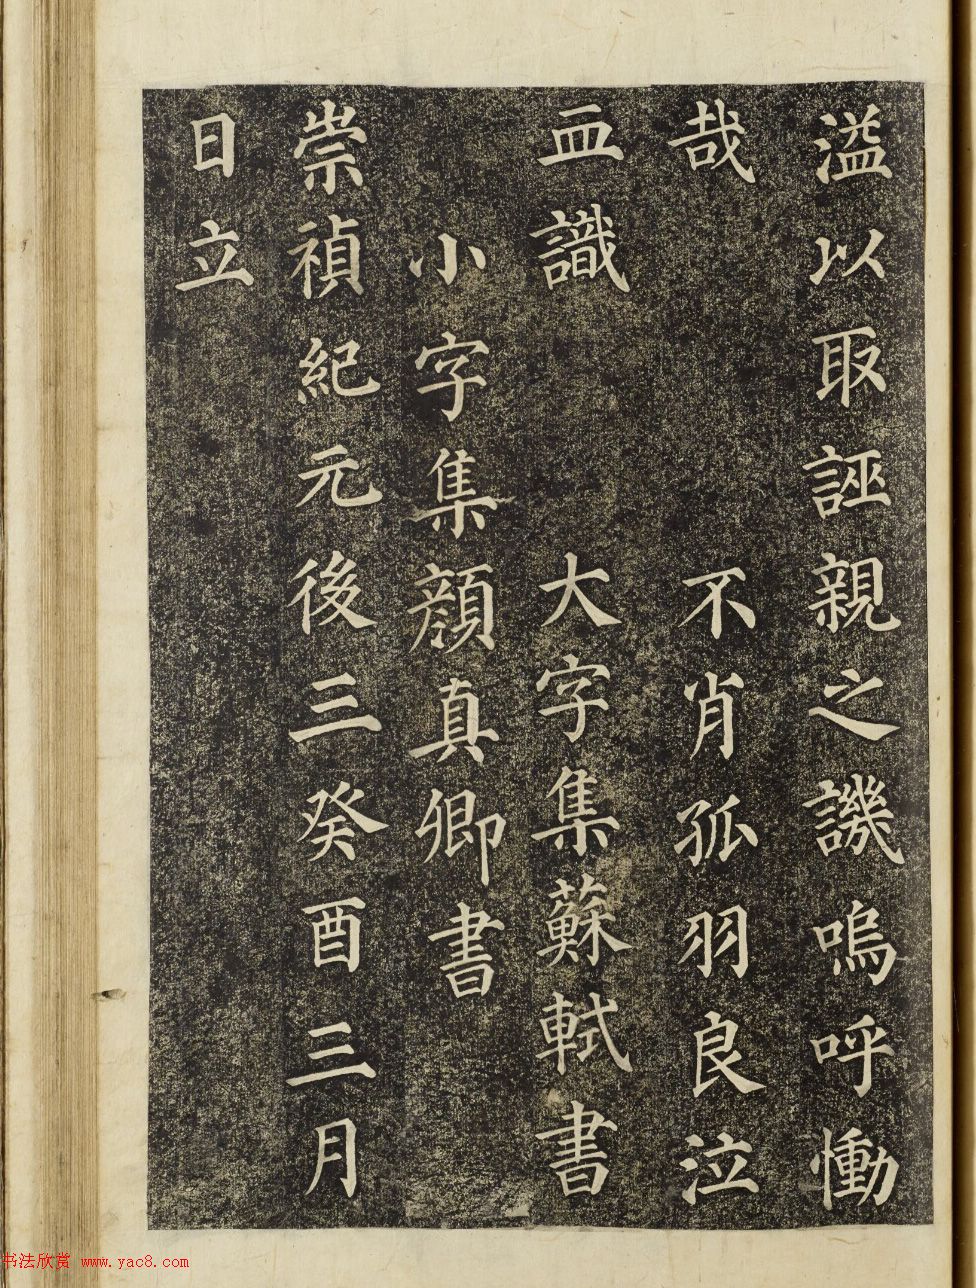 溢以取誣親之譏嗚呼慟
哉 不肖孤羽良泣
血識 大字集蘇軾書
小字集顏真卿書
崇禎紀元後三癸酉三月
日立
书法欣赏 www.yac8.com